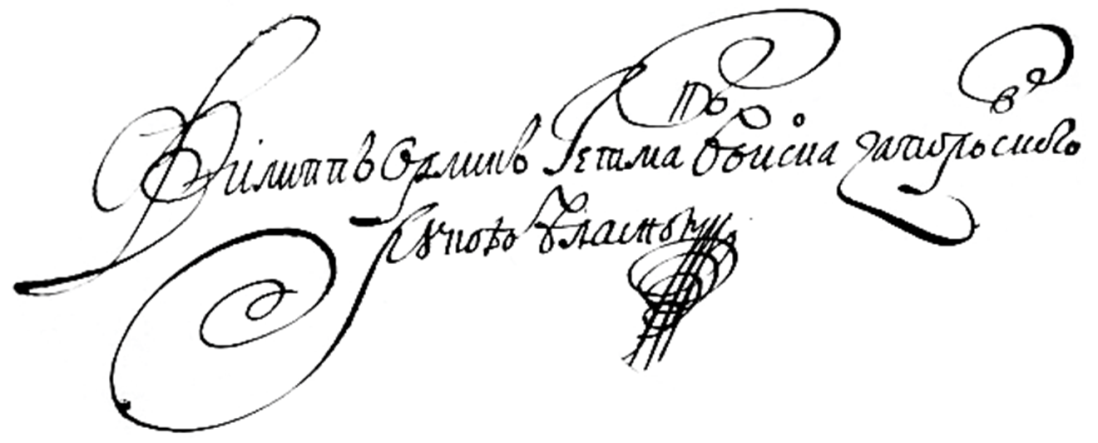 Ѳилиппъ Орликъ Гетманъ Войска Запорозского
рукою власною